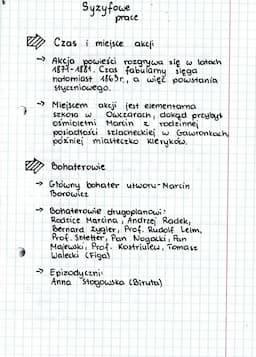 Syzyfowe
prace
Czas i miejsce akcji
→ Akcja powieści rozgrywa się w latach
1871-1881. Czas fabularny sięga
natomiast 1863r., a więc powstania
styczniowego.
→ Miejscem akcji jest elementarna
szkoła w Owczarach, dokąd przybył
ośmioletni Marcin z rodzinnej
posiadłości szlacheckiej w Gawronkach,
później miasteczko Kleryków.
Bohaterowie
→ Główny bohater utworu-Marcin
Borowicz
→ Bohaterowie drugoplanowi:
Rodzice Marcina, Andrzej Radek,
Bernard Zygier, Prof. Rudolf Leim,
Prof. Sztetter, Pan Nogacki, Pan
Majewski, Prof. Kostriulew, Tomasz
Walecki (Figa)
→ Epizodyczni:
Anna Stogowska (Biruta)